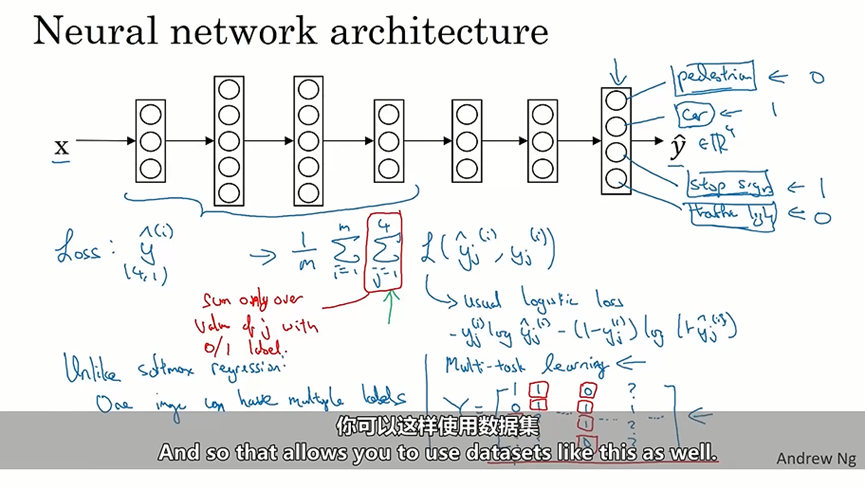 Neural network architecture
pedestrian ← 0
car ← 1
x
ŷ ∈ ℝ⁴
stop sign ← 1
traffic light ← 0
Loss: ŷ^(i) → 1/m Σ_{i=1}^{m} Σ_{j=1}^{4} L(ŷ_j^(i), y_j^(i))
(4,1)
Sum only over
value of j with
0/1 label.
usual logistic loss
- y_j^(i) log ŷ_j^(i) - (1-y_j^(i)) log (1-ŷ_j^(i))
Unlike softmax regression:
One image can have multiple labels
Multi-task learning ←
Y = [ 1 1 0 ?
0 1 1
你可以这样使用数据集
And so that allows you to use datasets like this as well.
Andrew Ng